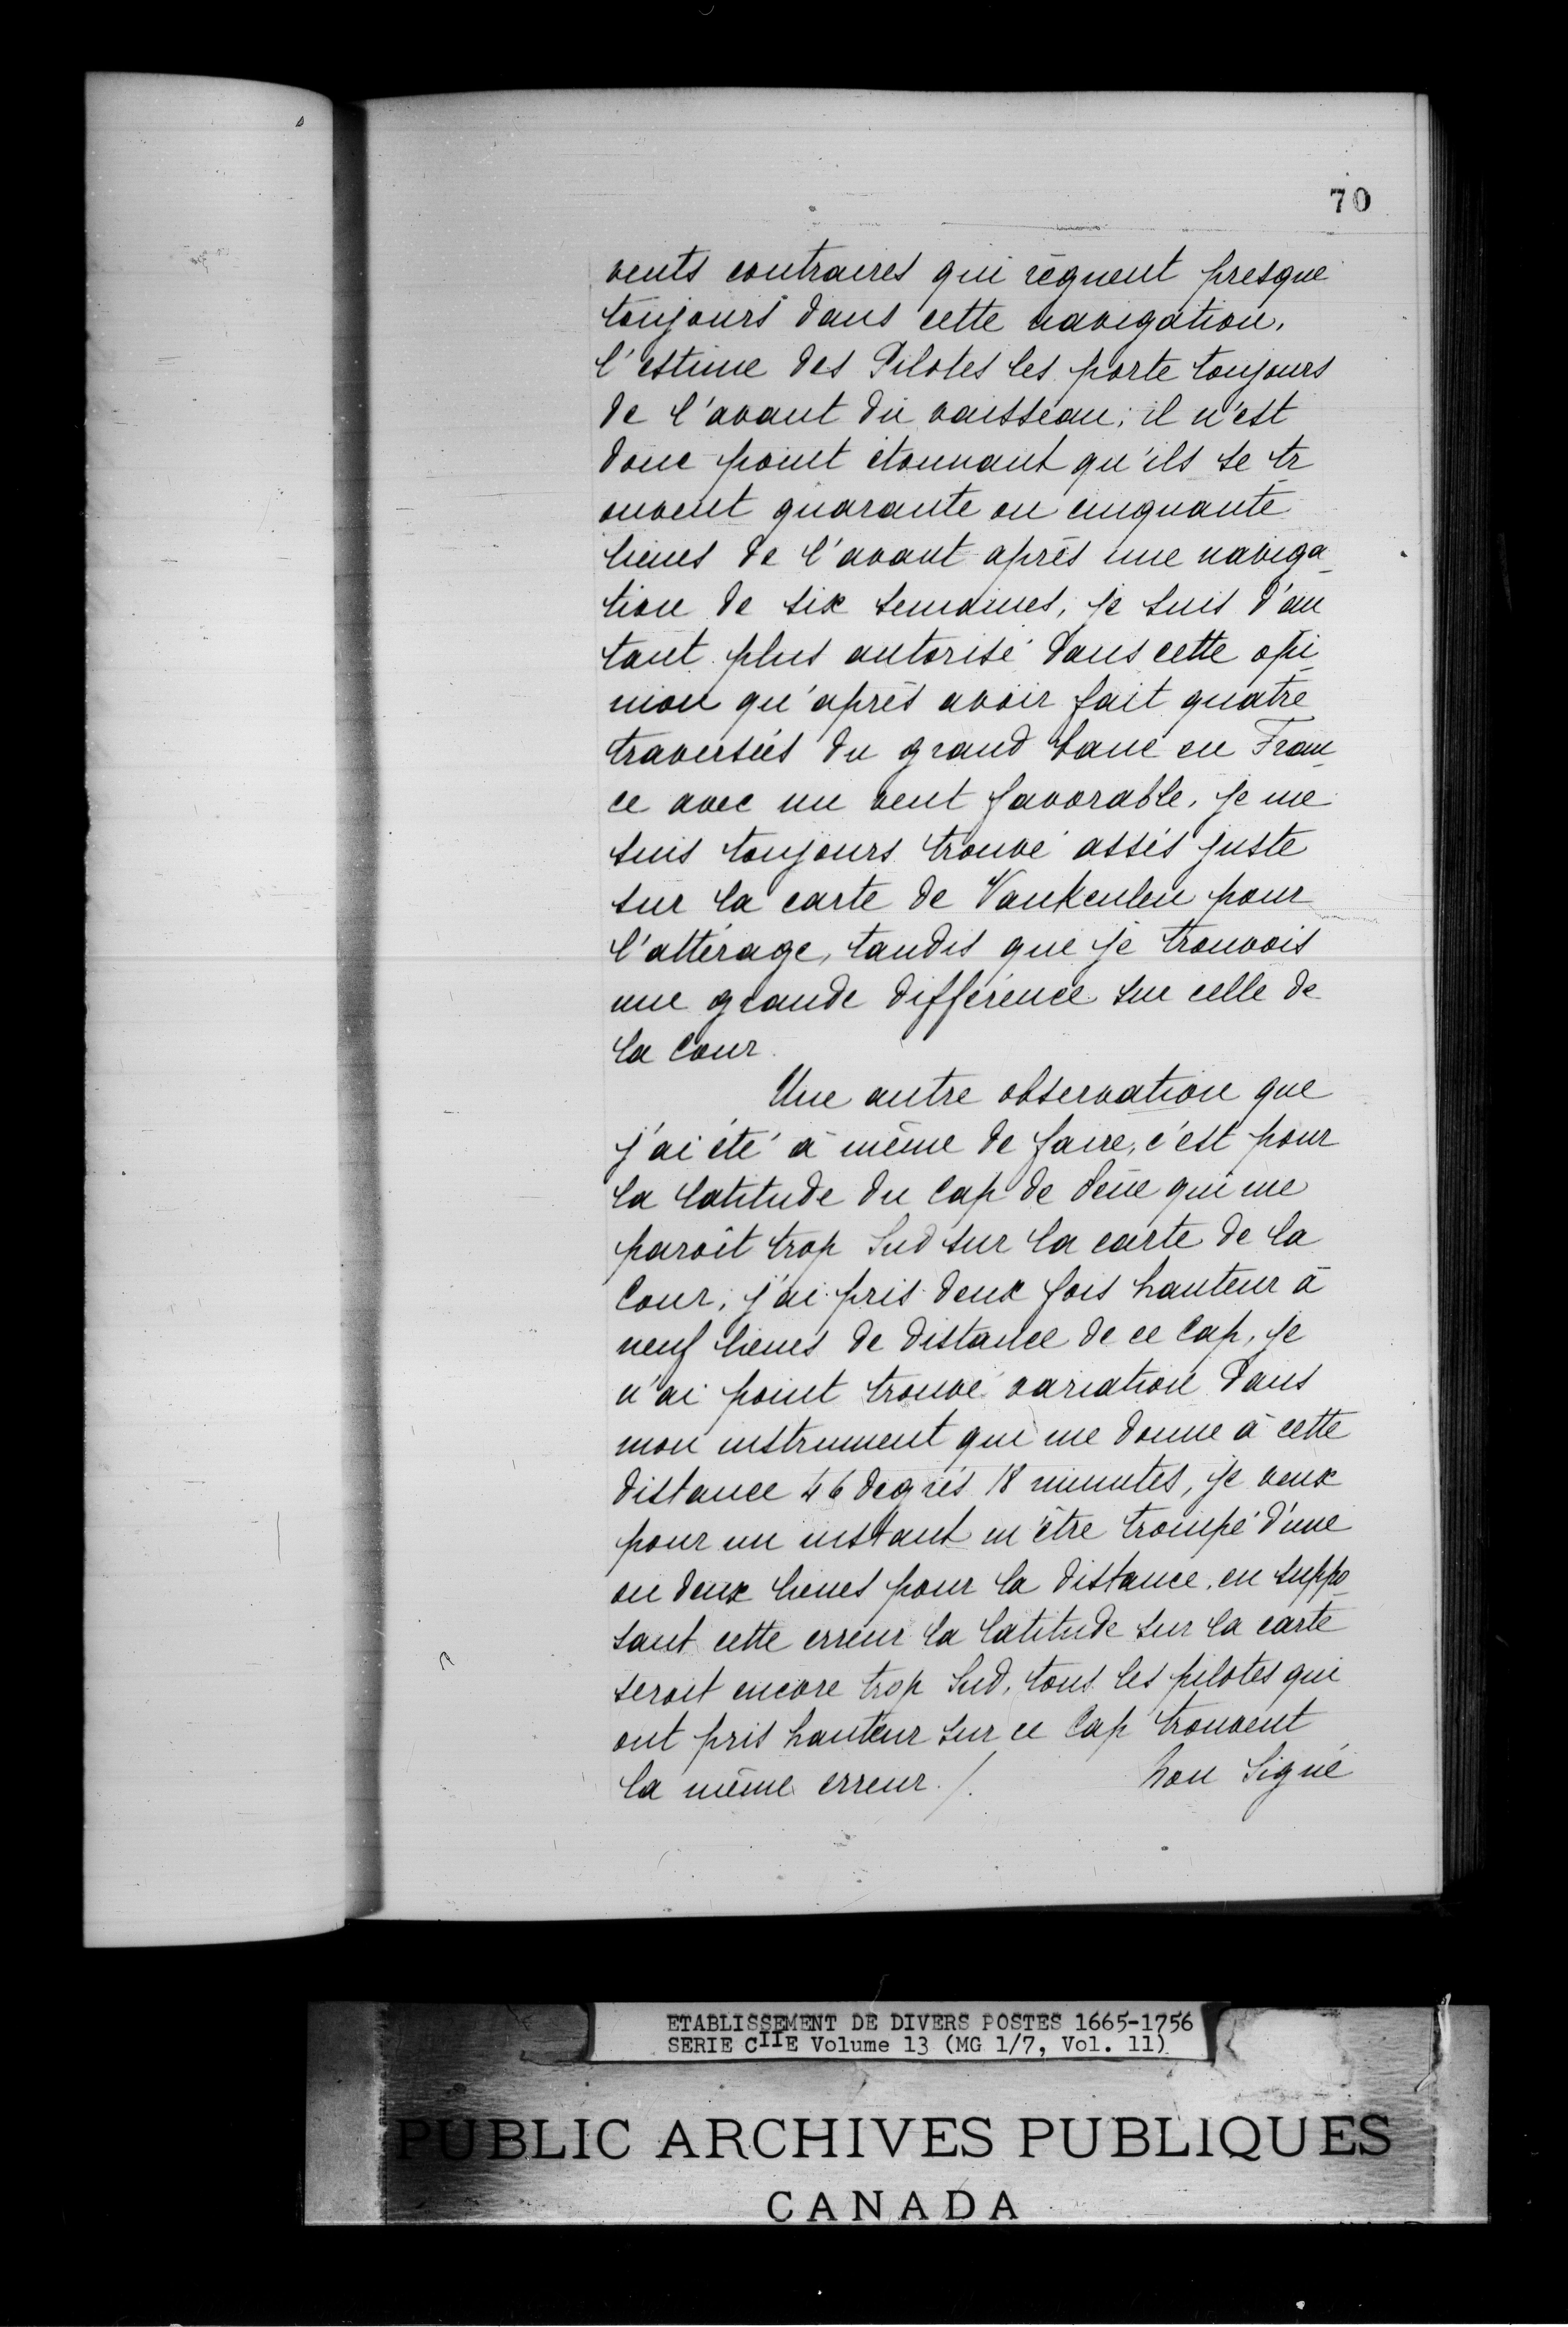 70
vents contraires qui règnent presque
toujours dans cette navigation,
l'estime des Pilotes les porte toujours
de l'avant du vaisseau; il n'est
donc point étonnant qu'ils se tr
ouvent quarante ou cinquante
lieues de l'avant après une naviga_
tion de six semaines, je suis d'au
tant plus autorisé dans cette opi_
nion qu'après avoir fait quatre
traversées du grand banc en Fran_
ce avec un vent favorable, je me
suis toujours trouvé assés juste
sur la carte de Vankeulen pour
l'attérage, tandis que je trouvois
une grande différence sur celle de
la Cour.
Une autre observation que
j'ai été à même de faire, c'est pour
la latitude du Cap de qui me
paroît trop Sud sur la carte de la
Cour, j'ai pris deux fois hauteur à
neuf lieues de distance de ce Cap, je
n'ai point trouvé variation dans
mon instrument qui me donne à cette
distance 46 degrés 18 minutes, je veux
pour un instant m'être trompé d'une
ou deux lieues pour la distance, en suppo_
sant cette erreur la latitude sur la carte
seroit encore trop Sud, tous les pilotes qui
ont pris hauteur sur ce Cap trouvent
la même erreur./. Non Signé
ETABLISSEMENT DE DIVERS POSTES 1665-1756
SERIE CIIE Volume 13 (MG 1/7, Vol. 11)
PUBLIC ARCHIVES PUBLIQUES
CANADA